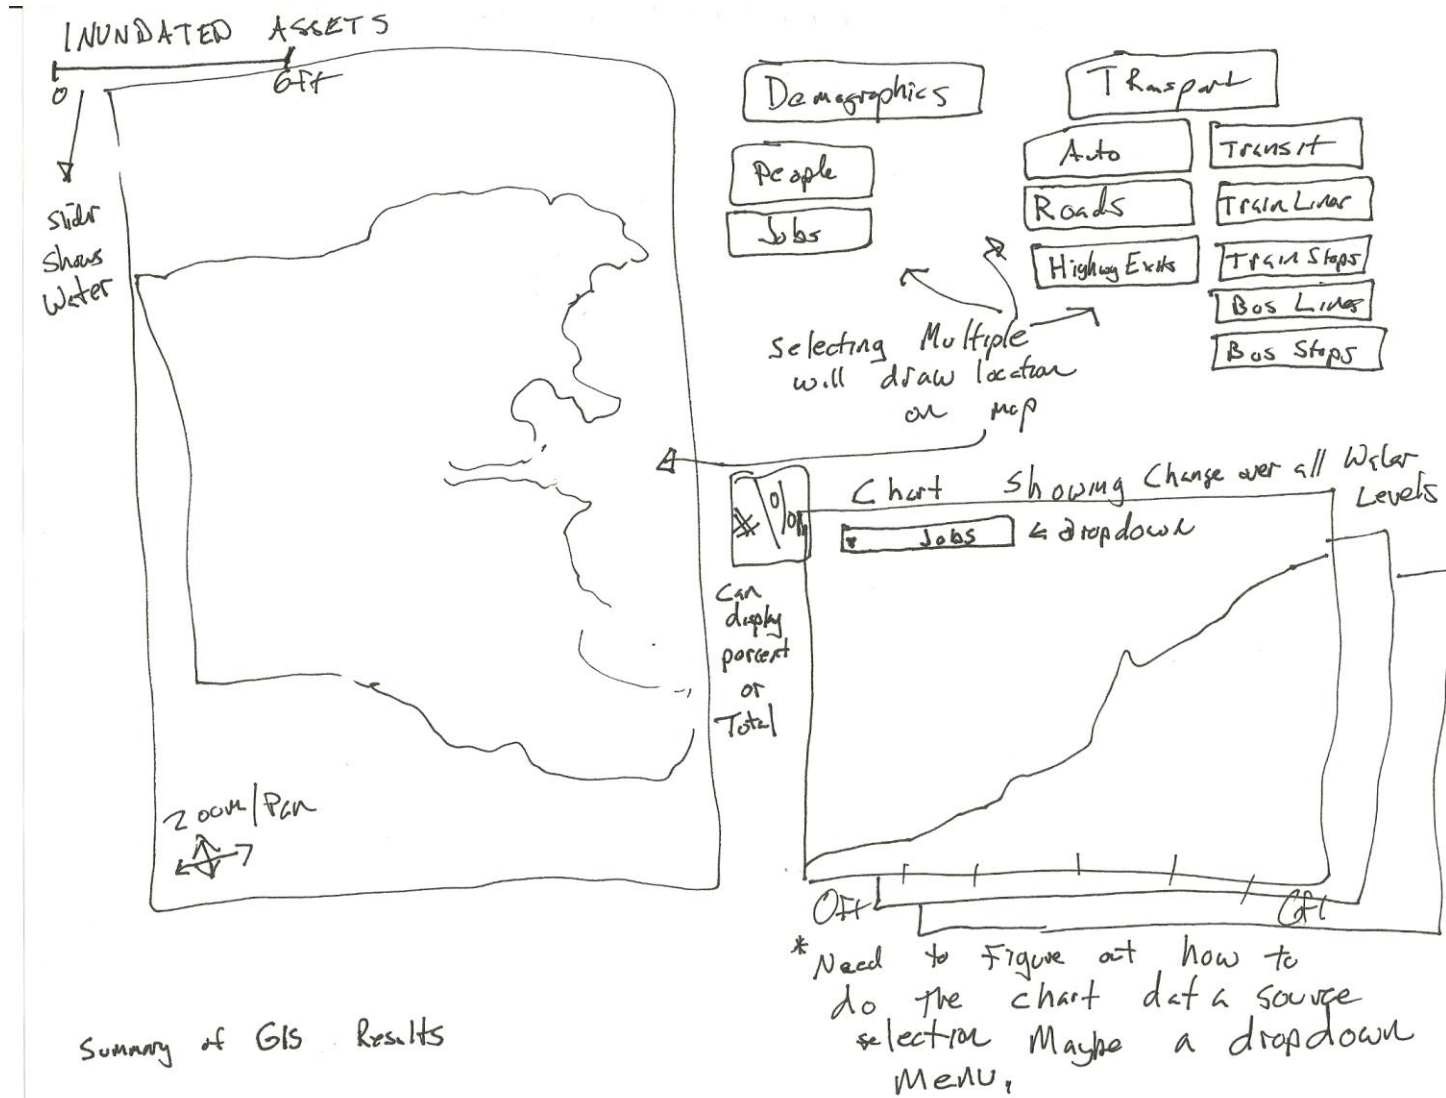 INUNDATED ASSETS
0
6ft
Slidr
Shows
Water
Zoom/Pan
Summary of GIS Results
Demographics
People
Jobs
TRansport
Auto
Roads
Highwy Exits
Transit
Train Lines
Train Stops
Bos Lines
Bos Stops
Selecting Multiple
will draw location
on map
# / %
Can
display
percent
or
Total
Chart Showing Change over all Water
Levels
Jobs
← dropdown
0ft
6ft
*Need to Figure out how to
do the chart data source
selection Maybe a dropdown
Menu.